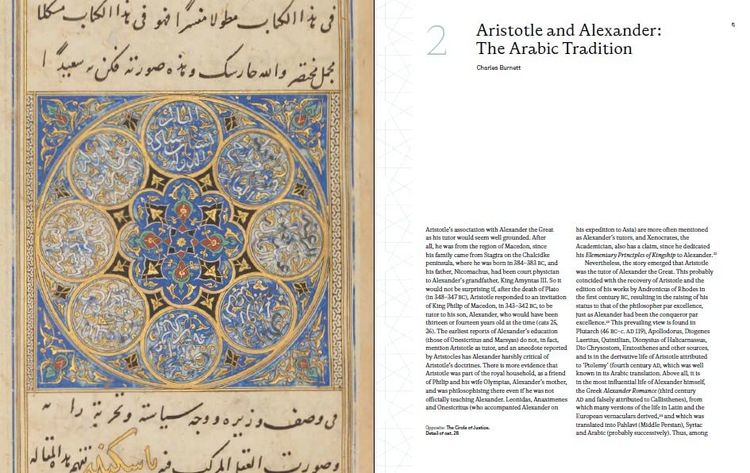 في هذا الكتاب مطولا مفسرا فهو في هذا الكتاب مشكلا
مجمل مختصر والله حارسك وهذه صورته فكن به سعيدا
في وصف وزيره ووجه سياسته وتجربة رايه
وصورت العقل المركب فيه يا سكندر تفهم هذه المقالة
2
Aristotle and Alexander:
The Arabic Tradition
Charles Burnett
Aristotle's association with Alexander the Great
as his tutor would seem well grounded. After
all, he was from the region of Macedon, since
his family came from Stagira on the Chalcidike
peninsula, where he was born in 384–383 BC, and
his father, Nicomachus, had been court physician
to Alexander's grandfather, King Amyntas III. So it
would not be surprising if, after the death of Plato
(in 348–347 BC), Aristotle responded to an invitation
of King Philip of Macedon, in 343–342 BC, to be
tutor to his son, Alexander, who would have been
thirteen or fourteen years old at the time (cats 25,
26). The earliest reports of Alexander's education
(those of Onesicritus and Marsyas) do not, in fact,
mention Aristotle as tutor, and an anecdote reported
by Aristocles has Alexander harshly critical of
Aristotle's doctrines. There is more evidence that
Aristotle was part of the royal household, as a friend
of Philip and his wife Olympias, Alexander's mother,
and was philosophising there even if he was not
officially teaching Alexander. Leonidas, Anaximenes
and Onesicritus (who accompanied Alexander on
Opposite: The Circle of Justice.
Detail of cat. 28
his expedition to Asia) are more often mentioned
as Alexander's tutors, and Xenocrates, the
Academician, also has a claim, since he dedicated
his Elementary Principles of Kingship to Alexander.
Nevertheless, the story emerged that Aristotle
was the tutor of Alexander the Great. This probably
coincided with the recovery of Aristotle and the
edition of his works by Andronicus of Rhodes in
the first century BC, resulting in the raising of his
status to that of the philosopher par excellence,
just as Alexander had been the conqueror par
excellence. This prevailing view is found in
Plutarch (46 BC–c. AD 119), Apollodorus, Diogenes
Laertius, Quintilian, Dionysius of Halicarnassus,
Dio Chrysostom, Eratosthenes and other sources,
and is in the derivative life of Aristotle attributed
to 'Ptolemy' (fourth century AD, which was well
known in its Arabic translation. Above all, it is
in the most influential life of Alexander himself,
the Greek Alexander Romance (third century
AD and falsely attributed to Callisthenes), from
which many versions of the life in Latin and the
European vernaculars derived, and which was
translated into Pahlavi (Middle Persian), Syriac
and Arabic (probably successively). Thus, among